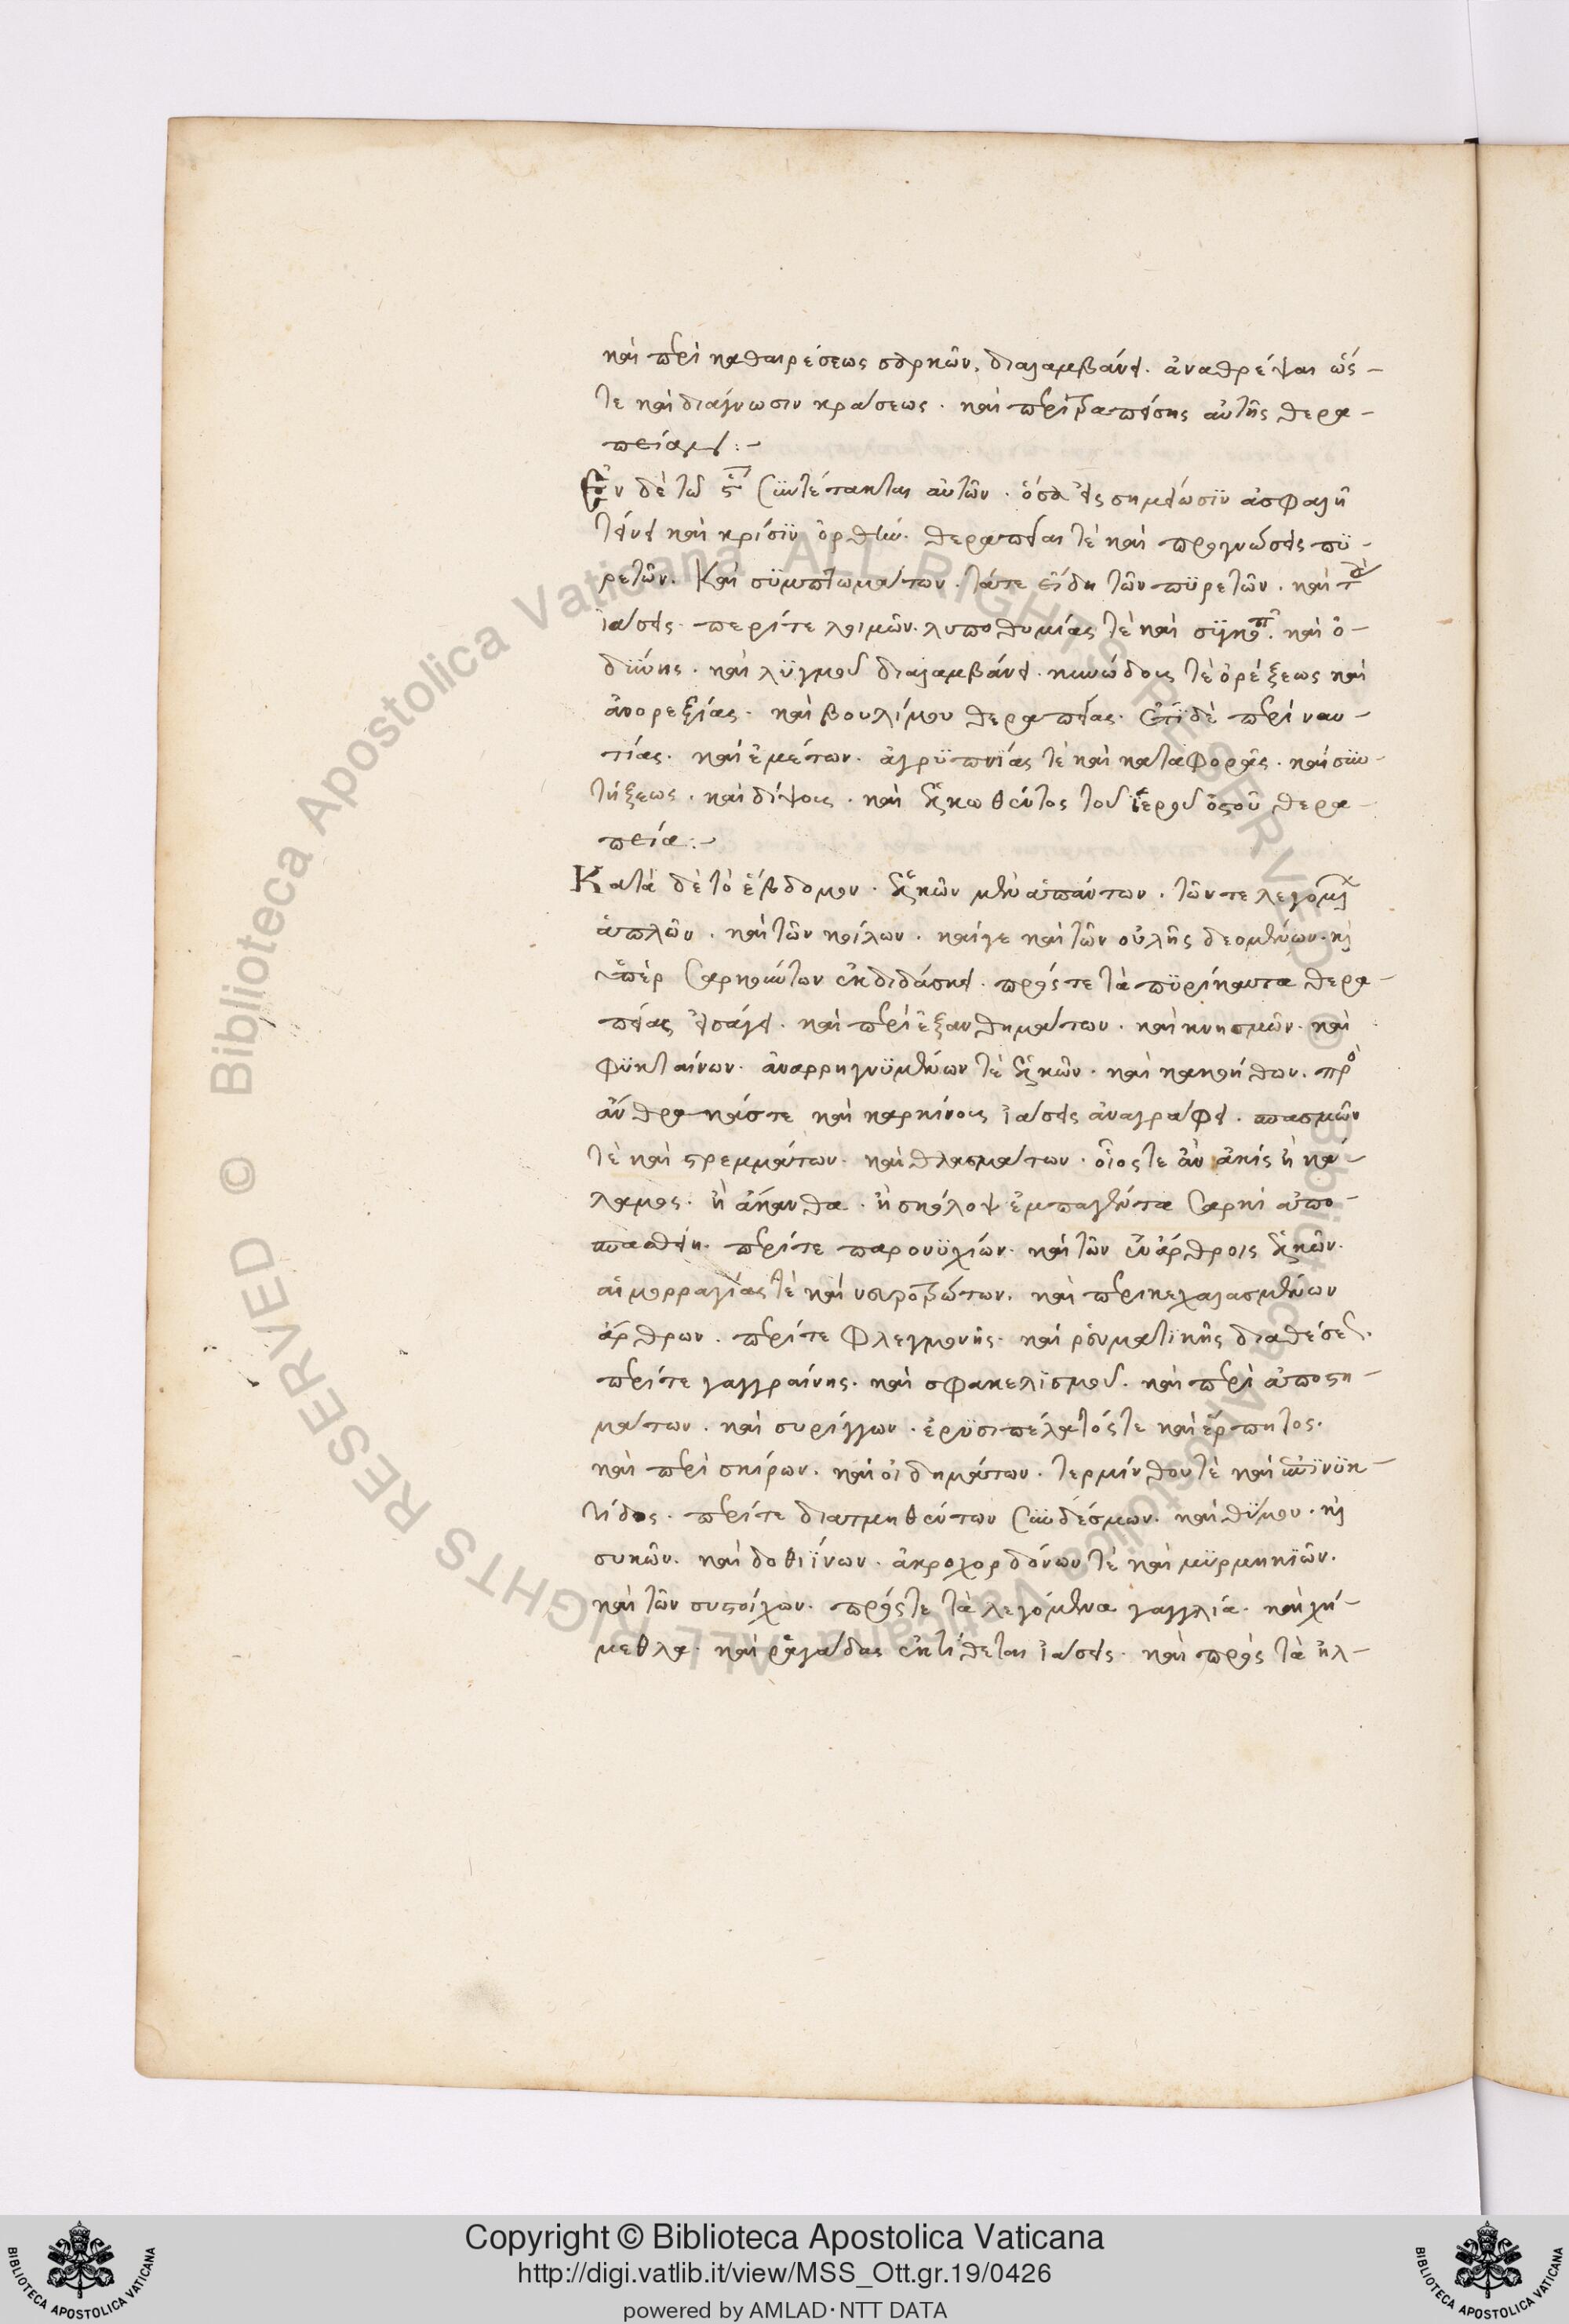 καὶ περὶ καθαιρέσεως σαρκῶν. διαλαμβάνει. ἀναθρέψαι ὥς-
τε καὶ διάγνωσιν κράσεως. καὶ περὶ αὐτῆς θερα-
πείαν:-
Ἐν δὲ τῷ ϛ συντέτακται αὐτῶν. ὅσα εἰς σημείωσϊν ἀσφαλῆ
τείνει καὶ κρίσϊν ὀρθήν. θεραπεῖαι τὲ καὶ προγνώσεις πϋ-
ρετῶν. Καὶ σϋμπτωμάτων. τάτε εἴδη τῶν πϋρετῶν. καὶ
ἰάσεις. περίτε λοιμῶν. λυποθυμίας τὲ καὶ σϋγκοπ. καὶ ὀ-
δϋνης. καὶ λϋγμοῦ διαλαμβάνει. κυνώδους τὲ ὀρέξεως καὶ
ἀνορεξίας. καὶ βουλίμου θεραπείας. ἔτϊ δὲ περὶ ναυ-
τίας. καὶ ἐμέτων. ἀγρϋπνίας τὲ καὶ καταφορᾶς. καὶ σϋν-
τήξεως. καὶ δίψους. καὶ ἑλκωθέντος τοῦ ἱεροῦ ὀστοῦ θερα-
πεία:-
Κατὰ δὲ τὸ ἕβδομον. ἑλκῶν μὲν ἁπάντων. τῶν τε λεγομ
ἁπλῶν. καὶ τῶν κοίλων. καίγε καὶ τῶν οὐλῆς δεομένων. κ
ὑπερσαρκούντων ἐκδιδάσκει. πρόςτε τὰ πϋρίκαυτα θερα-
πείας εἰσάγει. καὶ περὶ ἐξανθημάτων. καὶ κνησμῶν. καὶ
φϋκταίνων. ἀναρρηγνϋμένων τὲ ἑλκῶν. καὶ κακοήθων. πρὸ
ἄνθρακάστε καὶ καρκίνους ἰάσεις ἀναγράφει. σπασμῶν
τὲ καὶ στρεμμάτων. καὶ θλασμάτων. οἷοςτε ἂν ἀκίς ἢ κά-
λαμος. ἢ ἄκανθα. ἢ σκόλοψ ἐμπαγέντα σαρκὶ ἀπο-
σπασθείη. περίτε παρονϋχίων. καὶ τῶν ἐν ἄρθροις ἑλκῶν.
αἱμορραγίας τὲ καὶ νευροτρώτων. καὶ περὶ κεχαλασμένων
ἄρθρων. περίτε φλεγμονῆς. καὶ ῥευματϊκῆς διαθέσε.
περίτε γαγγραίνης. καὶ σφακελϊσμοῦ. καὶ περὶ ἀποστη-
μάτων. καὶ συρίγγων. ἐρϋσιπέλατόςτε καὶ ἕρπητος.
καὶ περὶ σκίρων. καὶ οἰδημάτων. τερμίνθου τὲ καὶ ἐπϊνϋκ-
τίδος. περίτε διατμηθέντων σϋνδέσμων. καὶ θϋμου. κ
συκῶν. καὶ δοθιϊνων. ἀκροχορδόνων τὲ καὶ μϋρμηκϊῶν.
καὶ τῶν συστοίχων. πρόςτε τὰ λεγόμενα γαγγλία. καὶ χή-
μεθλα. καὶ ῥαγάδας ἐκτίθεται ἰάσεις. καὶ πρὸς τὰ ἡλ-
Copyright © Biblioteca Apostolica Vaticana
http://digi.vatlib.it/view/MSS_Ott.gr.19/0426
powered by AMLAD·NTT DATA